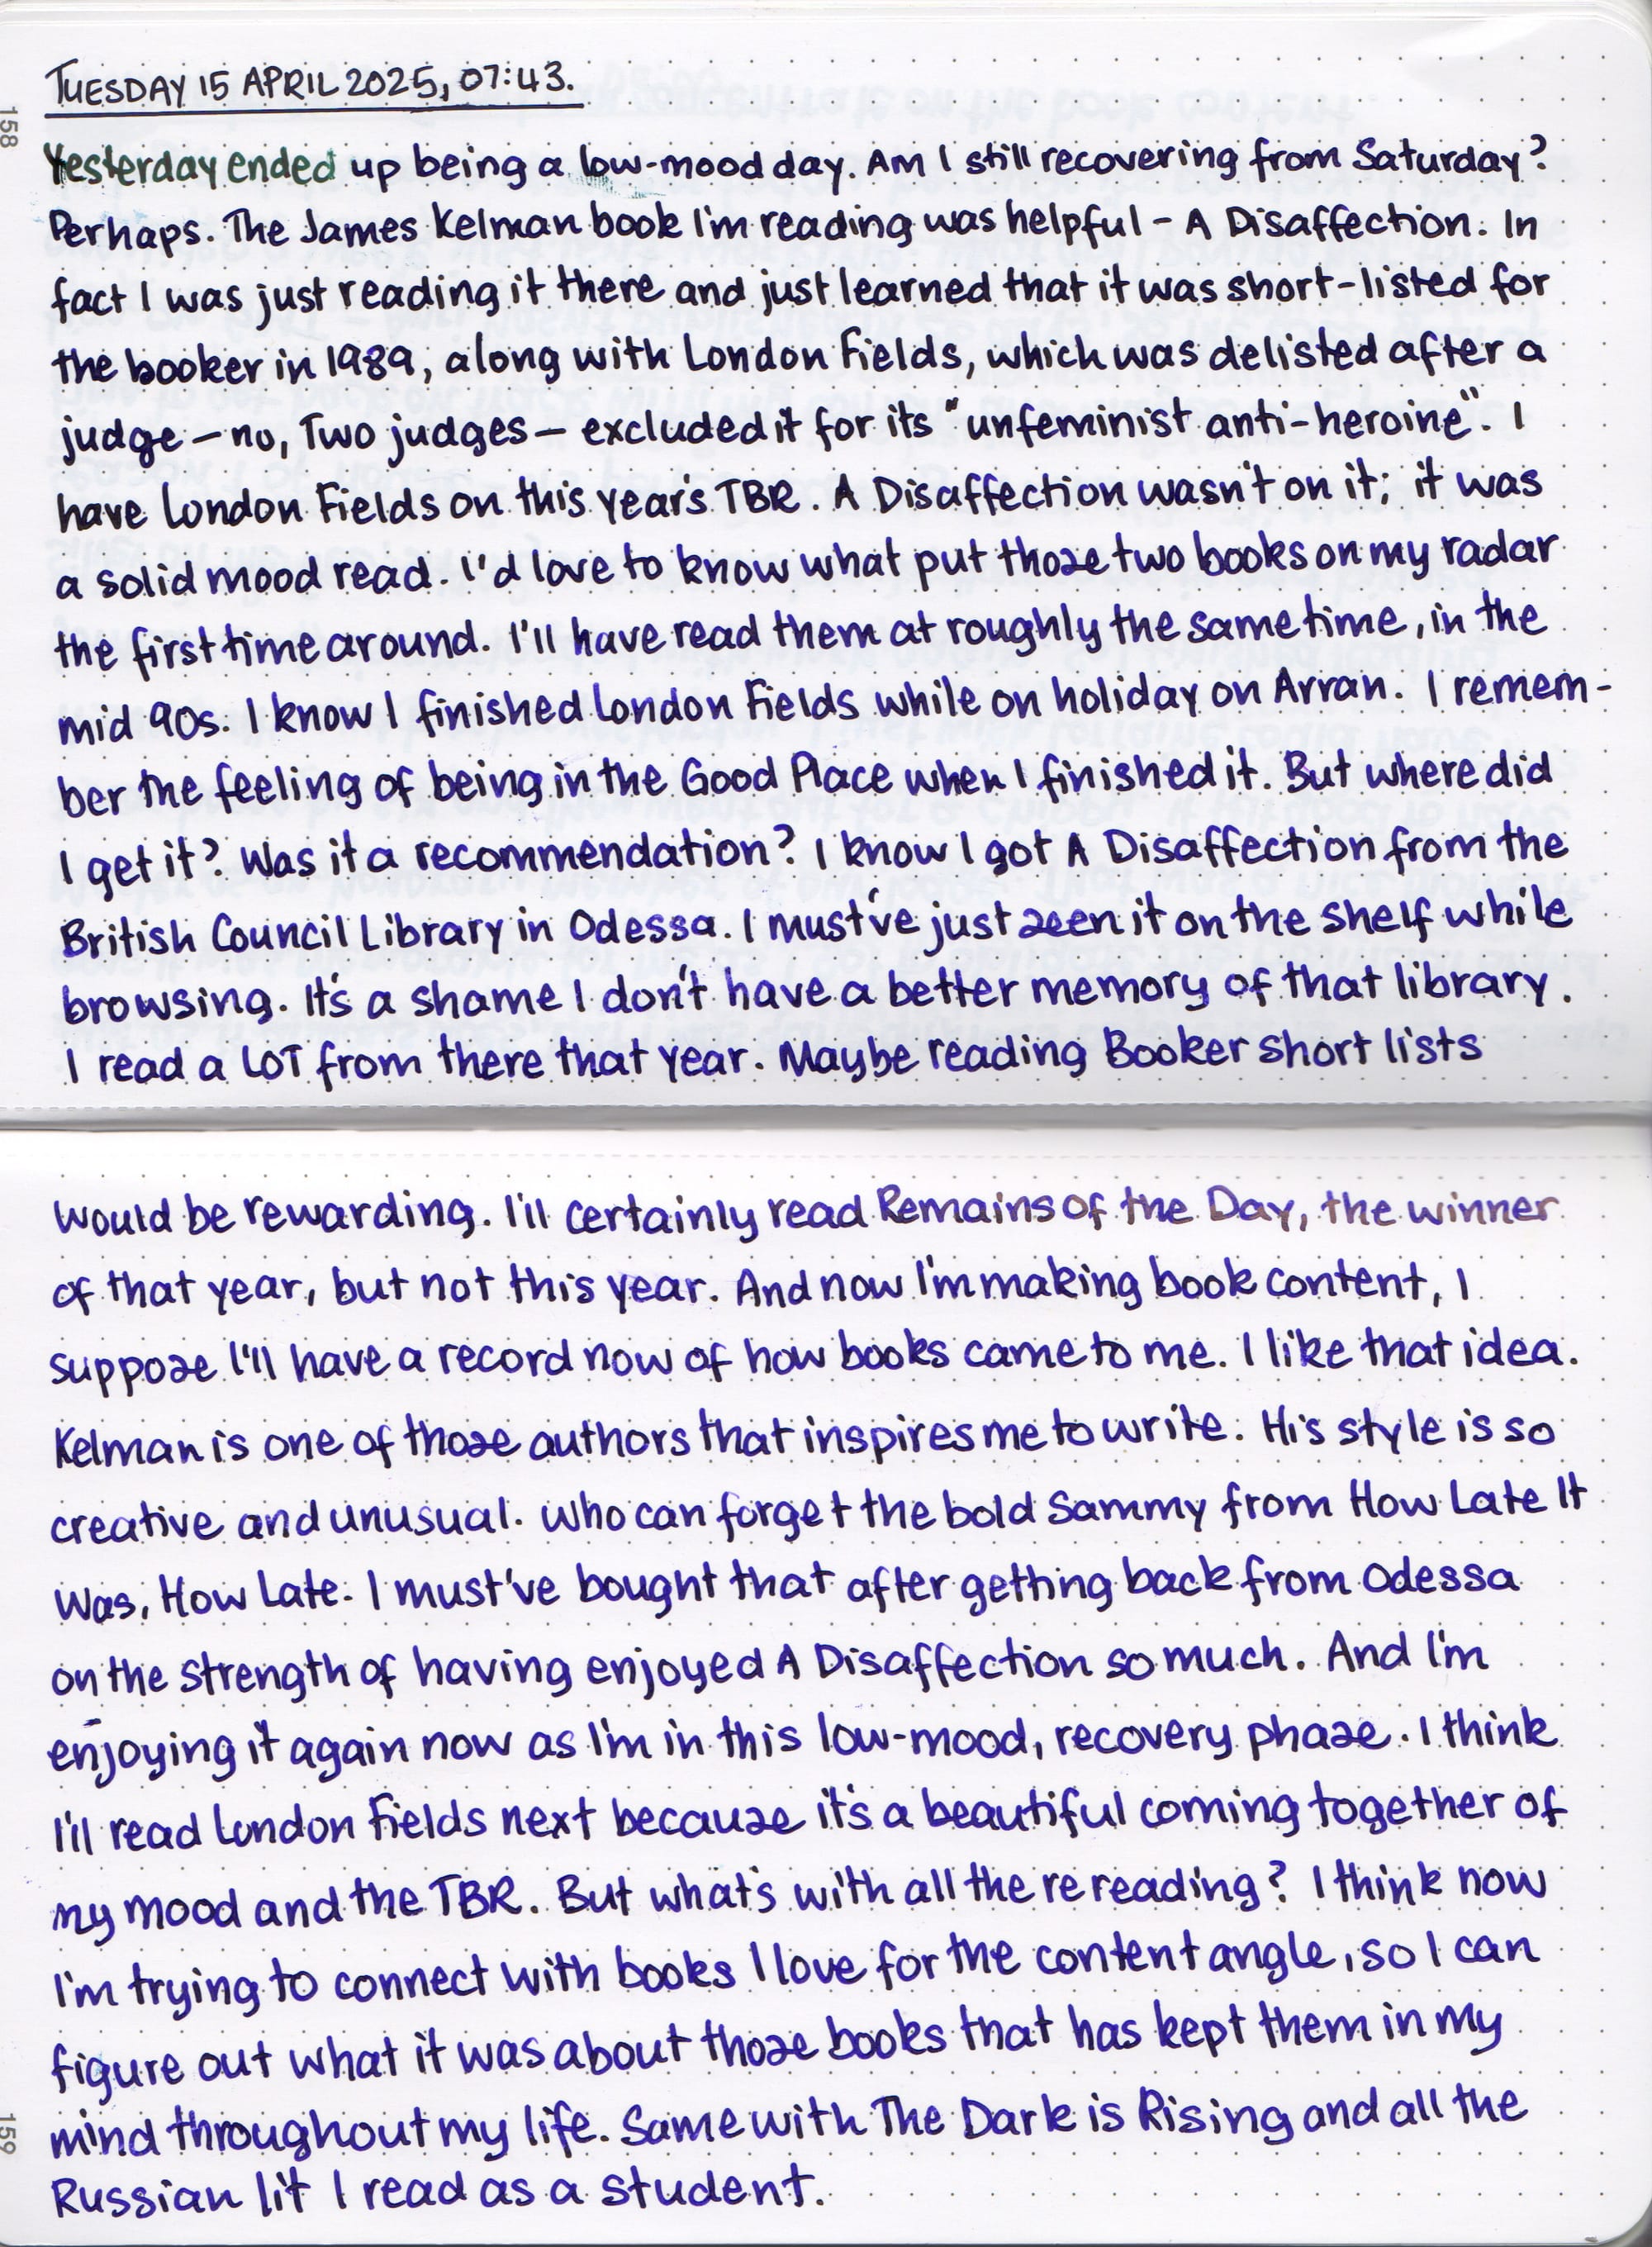 TUESDAY 15 APRIL 2025, 07:43.
158
Yesterday ended up being a low-mood day. Am I still recovering from Saturday?
Perhaps. The James Kelman book I'm reading was helpful – A Disaffection. In
fact I was just reading it there and just learned that it was short-listed for
the booker in 1989, along with London Fields, which was delisted after a
judge – no, Two judges – excluded it for its "unfeminist anti-heroine". I
have London Fields on this year's TBR. A Disaffection wasn't on it; it was
a solid mood read. I'd love to know what put those two books on my radar
the first time around. I'll have read them at roughly the same time, in the
mid 90s. I know I finished London Fields while on holiday on Arran. I remem-
ber the feeling of being in the Good Place when I finished it. But where did
I get it? Was it a recommendation? I know I got A Disaffection from the
British Council Library in Odessa. I must've just seen it on the shelf while
browsing. It's a shame I don't have a better memory of that library.
I read a LOT from there that year. Maybe reading Booker short lists
would be rewarding. I'll certainly read Remains of the Day, the winner
of that year, but not this year. And now I'm making book content, I
suppose I'll have a record now of how books came to me. I like that idea.
Kelman is one of those authors that inspires me to write. His style is so
creative and unusual. Who can forget the bold Sammy from How Late It
Was, How Late. I must've bought that after getting back from Odessa
on the strength of having enjoyed A Disaffection so much. And I'm
enjoying it again now as I'm in this low-mood, recovery phase. I think
I'll read London Fields next because it's a beautiful coming together of
my mood and the TBR. But what's with all the rereading? I think now
I'm trying to connect with books I love for the content angle, so I can
figure out what it was about those books that has kept them in my
mind throughout my life. Same with The Dark is Rising and all the
Russian lit I read as a student.
159